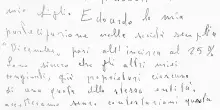 mio figlio Edoardo la mia
partecipazione nella società semplice
"Dicembre, pari all'incirca al 25%
Sono sicuro che gli altri miei
congiunti, già proprietari ciascuno
di una quota della stessa entità,
accetteranno senza contestazioni questa